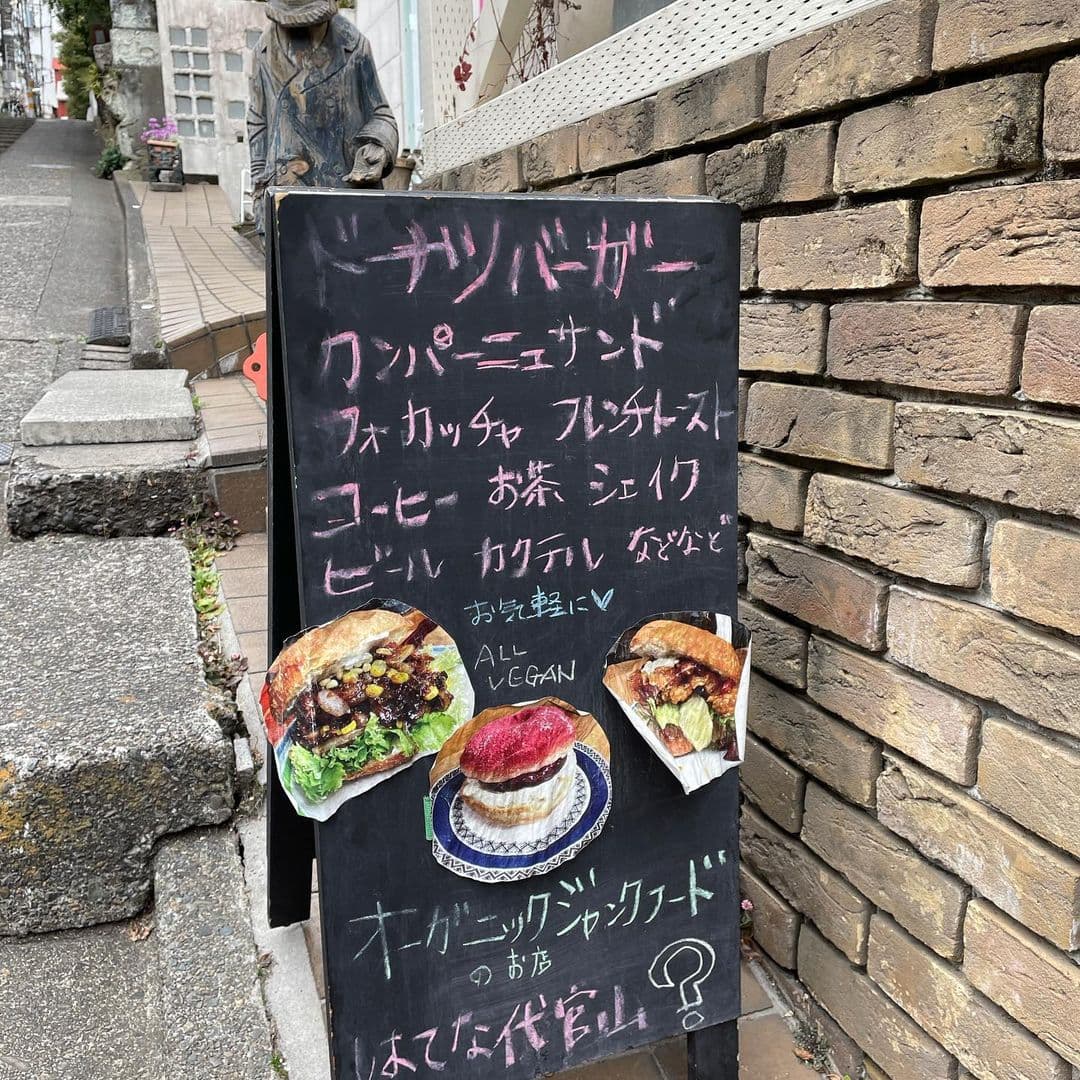 ドーナツバーガー
カンパーニュサンド
フォカッチャ フレンチトースト
コーヒー お茶 シェイク
ビール カクテル などなど
お気軽に♥
ALL
VEGAN
オーガニックジャンクフード
のお店
はてな代官山?